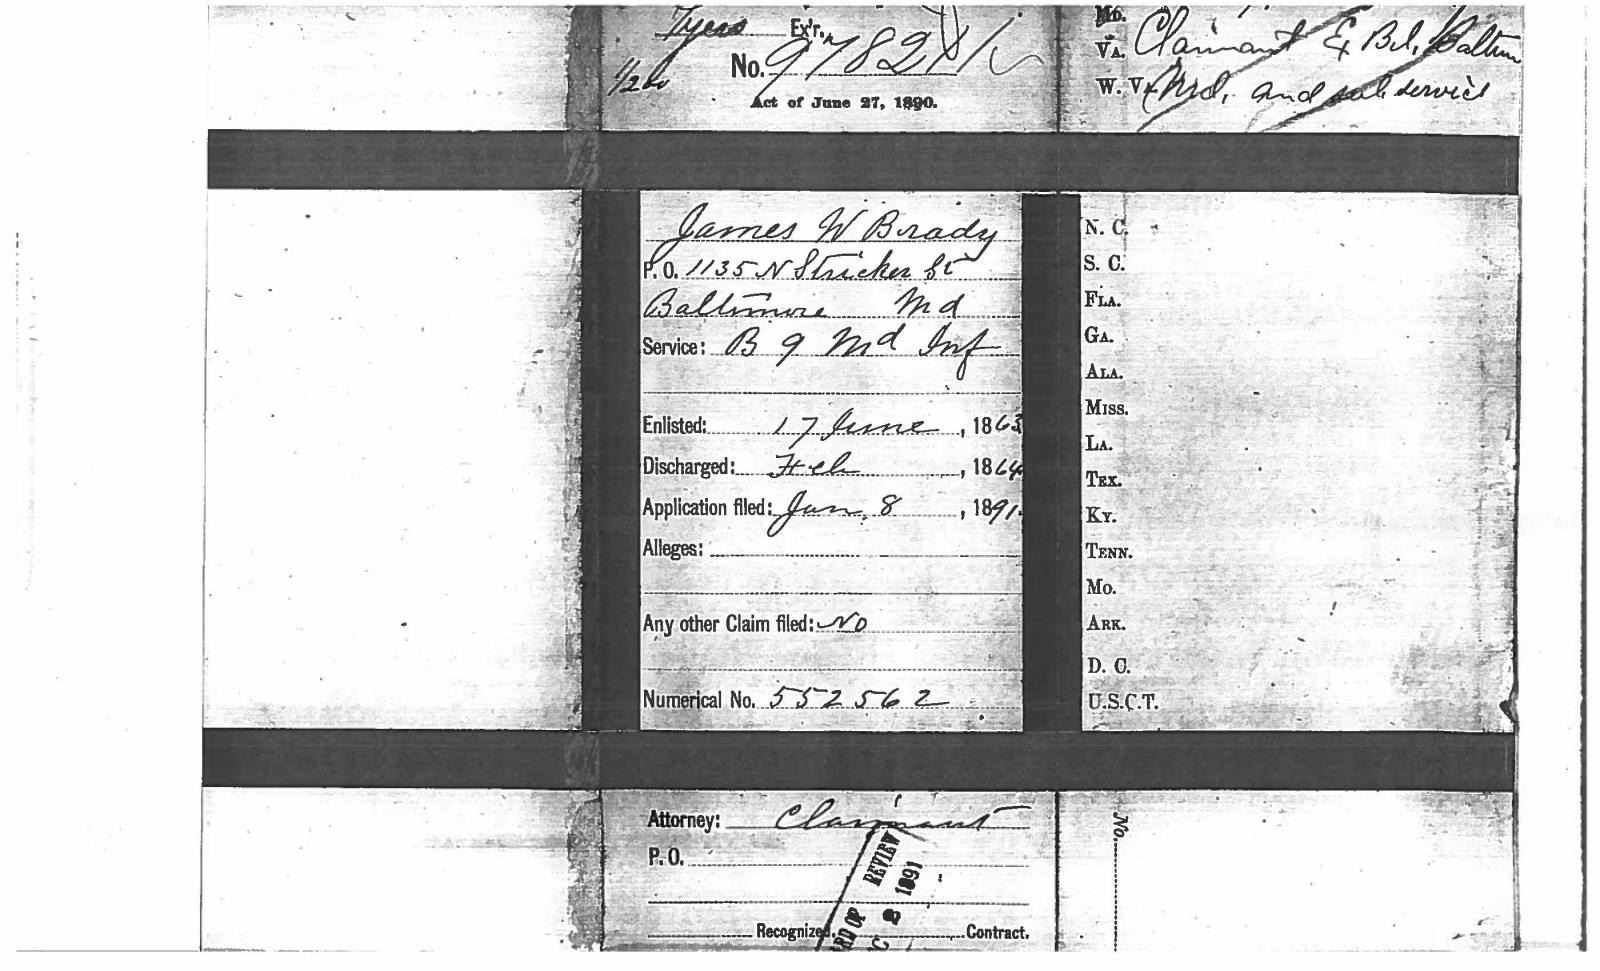 Tyers Ex'r.
No. 9782
1/260
Act of June 27, 1890.
Md.
Va. Claimant & Bd, Baltim
W. Va. Md, and sub. service
James W Brady
P. O. 1135 N Stricker St
Baltimore Md
Service: B 9 Md Inf
Enlisted: 17 June, 1863
Discharged: Feb, 1864
Application filed: Jan. 8, 1891.
Alleges:
Any other Claim filed: No
Numerical No. 552562
N. C.
S. C.
Fla.
Ga.
Ala.
Miss.
La.
Tex.
Ky.
Tenn.
Mo.
Ark.
D. C.
U.S.C.T.
Attorney: Claimant
P. O.
REVIEW
1891
Recognized. Contract.
No.